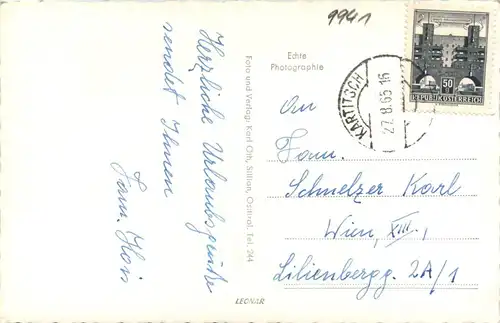 9941
Herzliche Urlaubsgrüße
sendet Ihnen
Fam.
Foto und Verlag: Karl Oth, Sillian, Osttirol, Tel. 244
Echte
Photographie
LEONAR
KARTITSCH
27.8.65 16
50
REPUBLIK ÖSTERREICH
An
Fam.
Schmelzer Karl
Wien, XIII.,
Lilienbergg. 2A/1